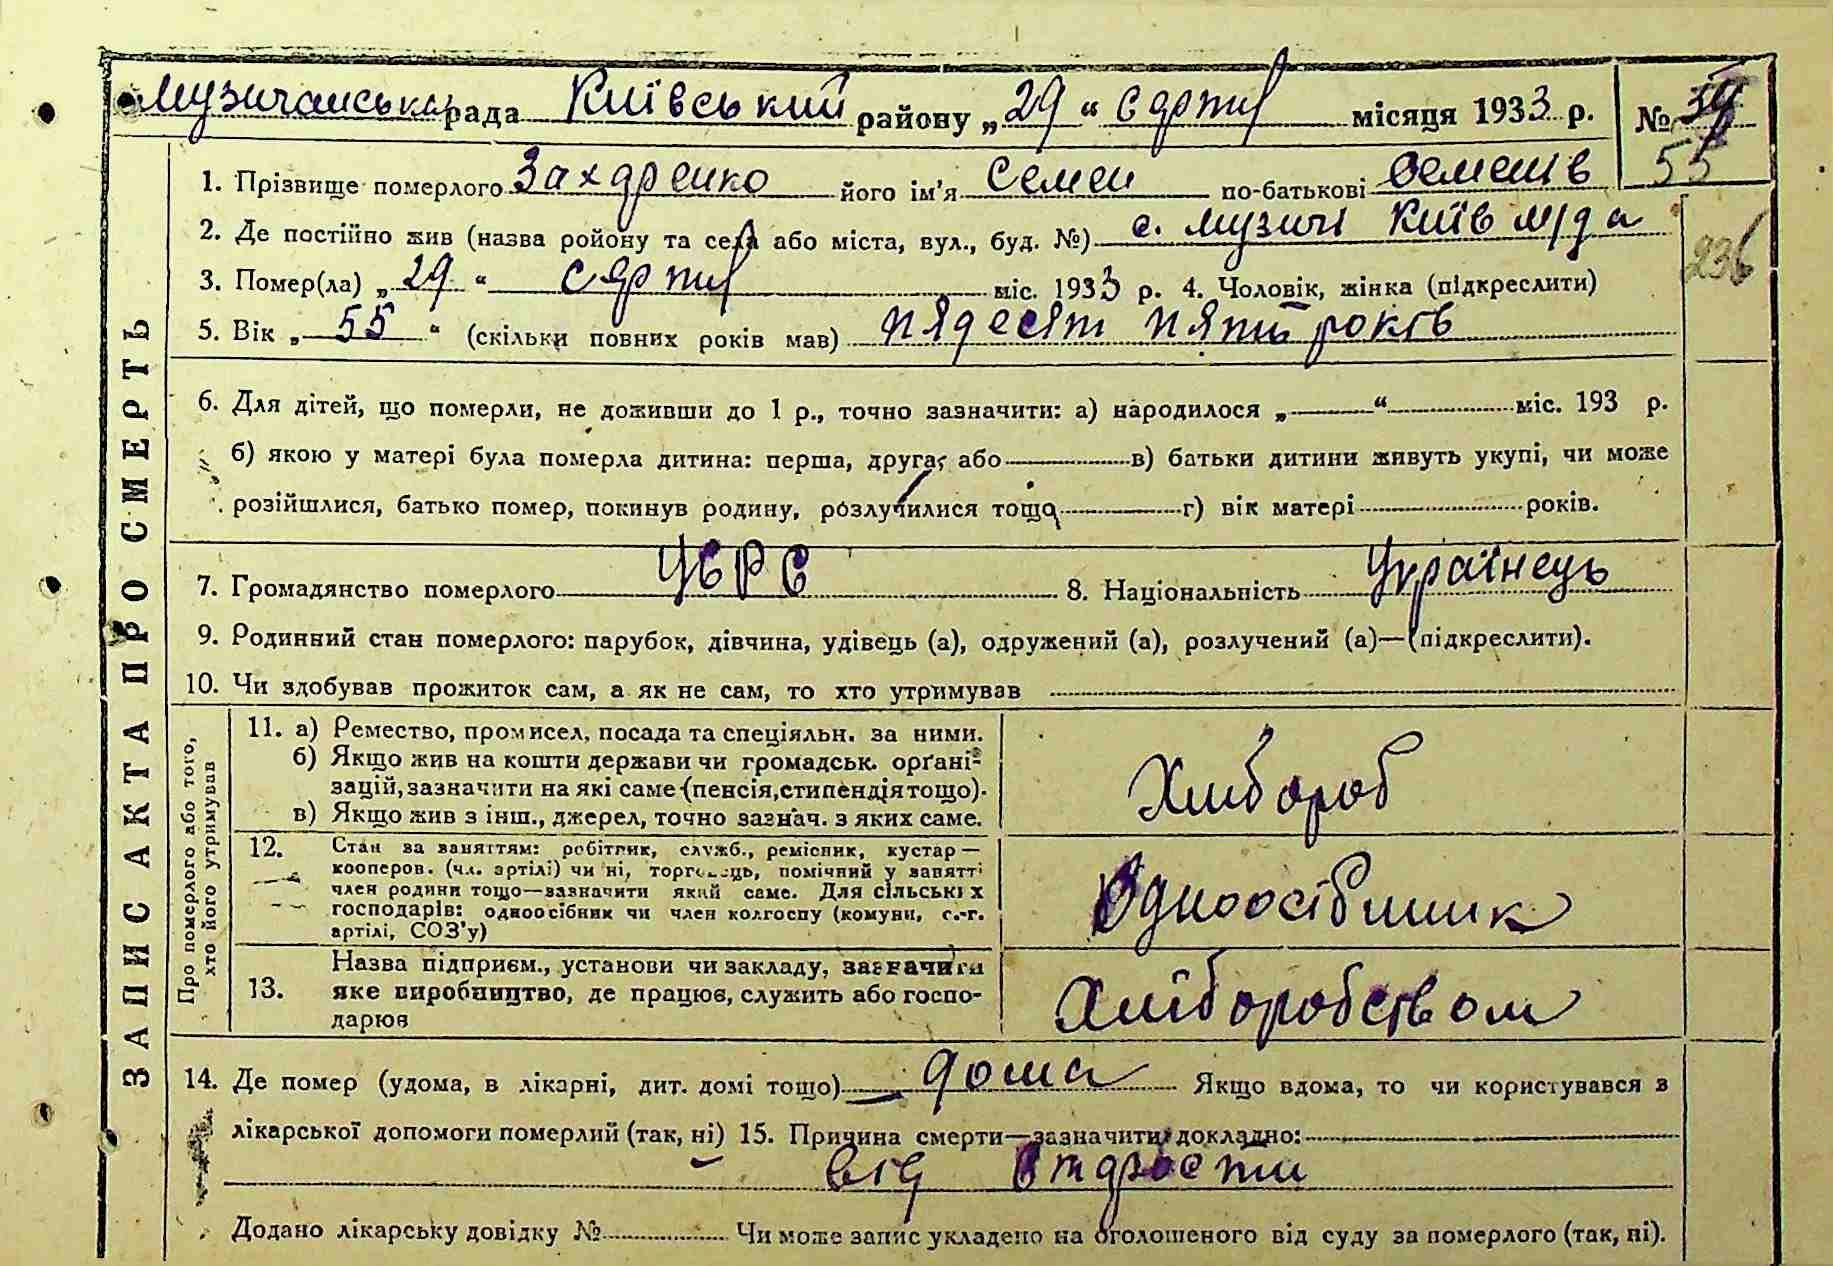 Музичанська рада Київський району „29“ серпня місяця 1933 р. №
55
1. Прізвище померлого Захаренко його ім'я Семен по-батькові Семенів
2. Де постійно жив (назва ройону та села або міста, вул., буд. №) с. Музичі Київ м/рда
236
3. Помер(ла) „29“ серпня міс. 1933 р. 4. Чоловік, жінка (підкреслити)
5. Вік „55“ (скільки повних років мав) пядесят пять років
6. Для дітей, що померли, не доживши до 1 р., точно зазначити: а) народилося „ “ міс. 193 р.
б) якою у матері була померла дитина: перша, друга, або в) батьки дитини живуть укупі, чи може
розійшлися, батько помер, покинув родину, розлучилися тощо г) вік матері років.
7. Громадянство померлого УСРС 8. Національність Українець
9. Родинний стан померлого: парубок, дівчина, удівець (а), одружений (а), розлучений (а)—(підкреслити).
10. Чи здобував прожиток сам, а як не сам, то хто утримував
ЗАПИС АКТА ПРО СМЕРТЬ
Про померлого або того, хто його утримував
11. а) Ремество, промисел, посада та спеціяльн. за ними.
б) Якщо жив на кошти держави чи громадськ. орґані-
зацій, зазначити на які саме (пенсія, стипендія тощо).
в) Якщо жив з інш., джерел, точно зазнач. з яких саме.
Хлібороб
12. Стан за заняттям: робітник, служб., ремісник, кустар—
кооперов. (чл. артілі) чи ні, торговець, помічний у занятті
член родини тощо—зазначити який саме. Для сільських
господарів: одноосібник чи член колгоспу (комуни, с.-г.
артілі, СОЗ'у)
Одноосібник
13. Назва підприєм., установи чи закладу, зазначити
яке виробництво, де працює, служить або госпо-
дарює
Хліборобством
14. Де помер (удома, в лікарні, дит. домі тощо) дома Якщо вдома, то чи користувався з
лікарської допомоги померлий (так, ні) 15. Причина смерти—зазначити докладно:
від старости
Додано лікарську довідку № Чи може запис укладено на оголошеного від суду за померлого (так, ні).